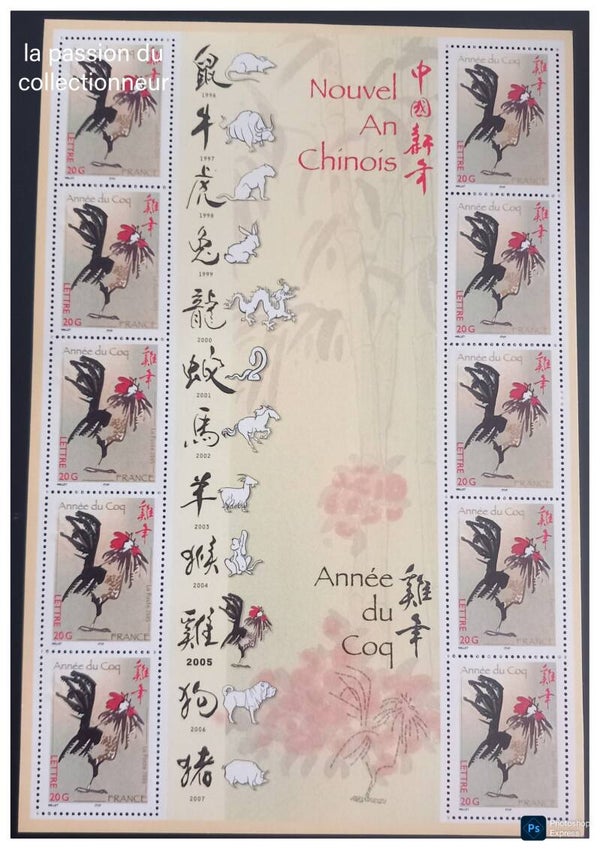 la passion du
collectionneur
雞年
LETTRE
20G
FRANCE
Année du Coq
雞年
LETTRE
20G
FRANCE
Année du Coq
雞年
LETTRE
La Poste 2005
20G
FRANCE
Année du Coq
雞年
LETTRE
La Poste 2005
20G
FRANCE
Année du Coq
雞年
LETTRE
La Poste 2005
20G
FRANCE
鼠
1996
牛
1997
虎
1998
兔
1999
龍
2000
2001
馬
2002
羊
2003
猴
2004
雞
2005
狗
2006
猪
2007
Nouvel
An
Chinois
中國新年
Année
du
Coq
雞年
Année du Coq
雞年
LETTRE
20G
FRANCE
Année du Coq
雞年
LETTRE
20G
FRANCE
Année du Coq
雞年
LETTRE
20G
FRANCE
Année du Coq
雞年
LETTRE
20G
FRANCE
Année du Coq
雞年
LETTRE
20G
FRANCE
Ps
Photoshop
Express